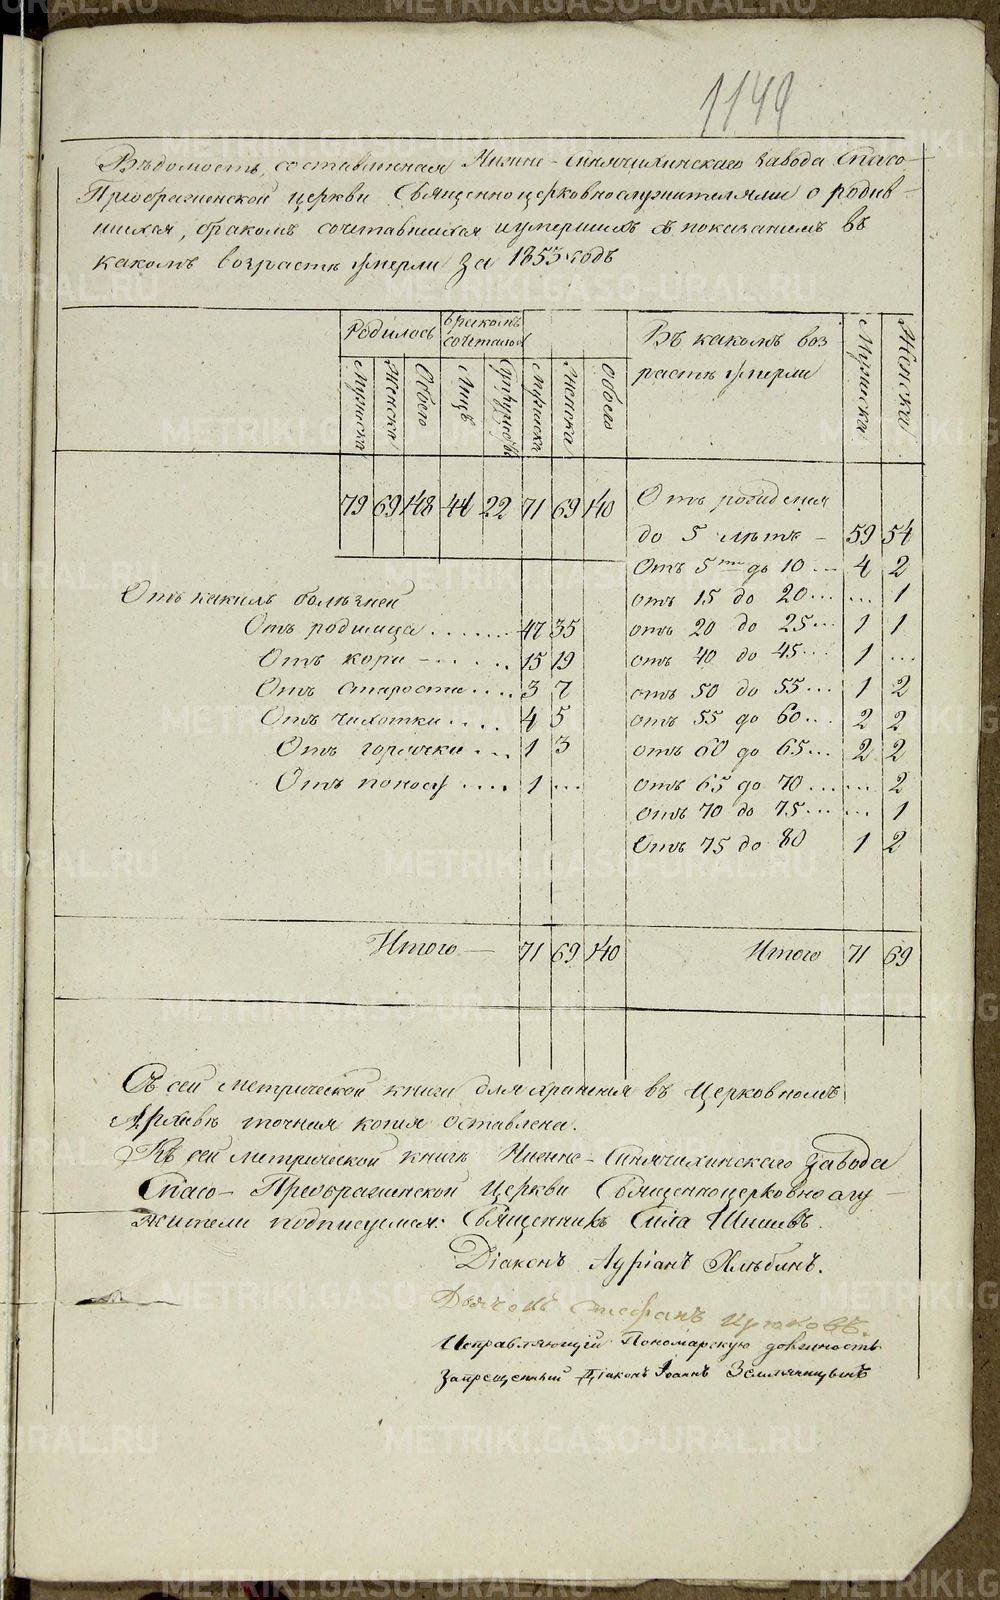 1149
Вѣдомость, составленная Нижне-Синячихинскаго завода Спасо-
Преображенской церкви Священноцерковнослужителями о родив-
шихся, бракомъ сочетавшихся и умершихъ съ показаніемъ въ
какомъ возрастѣ умерли за 1853 годъ
Родилось
бракомъ сочеталось
Въ какомъ воз
растѣ умерли
Мужска
Женска
Мужска
Женска
Обоего
Лицъ
Супружествъ
Мужска
Женска
Обоего
79 69 148 44 22 71 69 140
Отъ рожденія
до 5 лѣтъ - 59 54
Отъ 5ти до 10 ... 4 2
отъ 15 до 20 ... ... 1
отъ 20 до 25 ... 1 1
отъ 40 до 45 ... 1 ...
отъ 50 до 55 ... 1 2
отъ 55 до 60 ... 2 2
отъ 60 до 65 ... 2 2
отъ 65 до 70 ... ... 2
Отъ 70 до 75 ... ... 1
Отъ 75 до 80 1 2
Отъ какихъ болѣзней
Отъ родимца ....... 47 35
Отъ кори - ..... 15 19
Отъ старости .... 3 7
Отъ чахотки .... 4 5
Отъ горячки ... 1 3
Отъ поносу .... 1 ...
Итого — 71 69 140
Итого 71 69
Съ сей метрической книги для храненія въ Церковномъ
Архивѣ точная копія оставлена.
Къ сей метрической книгѣ Нижне-Синячихинскаго завода
Спасо-Преображенской Церкви Священноцерковнослу-
жители подписуемся: Священникъ Сила Шишевъ.
Діаконъ Адріанъ Хлѣбинъ.
Дьячокъ Стефанъ Ирюковъ.
Исправляющій Пономарскую должность
Запрещенный Діаконъ Іоаннъ Земляницынъ
METRIKI.GASO-URAL.RU